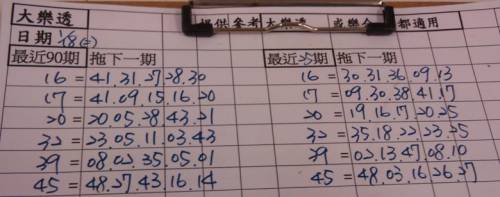 大樂透 提供參考大樂透 或樂合 都適用
日期 1/18(二)
最近90期 拖下一期 最近25期 拖下一期
16 = 41.31.27.28.30 16 = 30.31.36.09.13
17 = 41.09.15.16.20 17 = 09.30.38.41.17
20 = 20.05.28.43.21 20 = 19.16.17.20.25
32 = 23.05.11.03.43 32 = 35.18.22.23.25
39 = 08.02.35.05.01 39 = 02.13.47.08.10
45 = 48.27.43.16.14 45 = 48.03.16.26.27